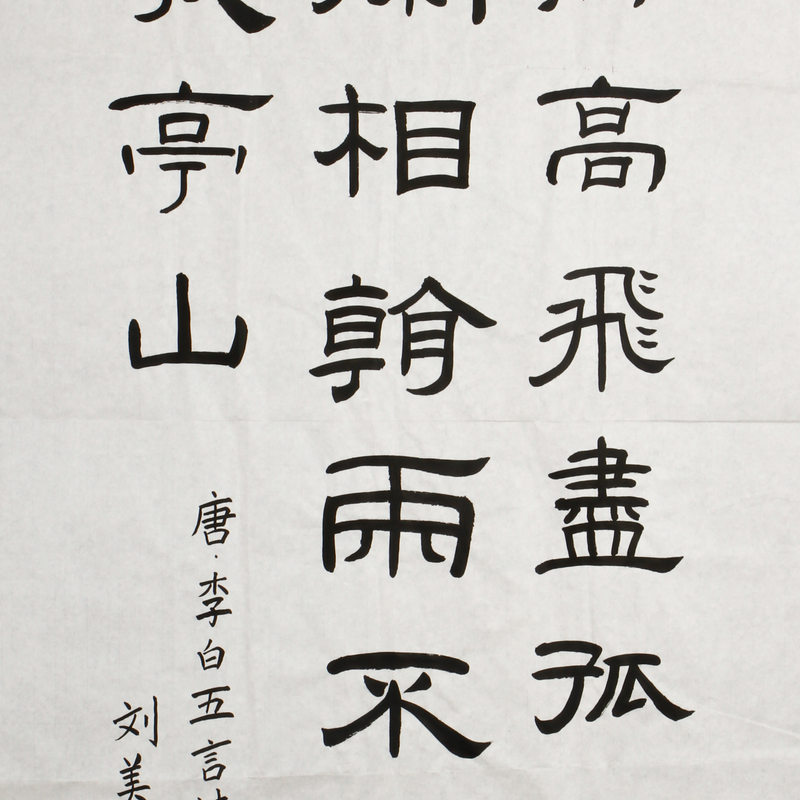 高飛盡孤
相看兩不
亭山
唐·李白五言
刘美